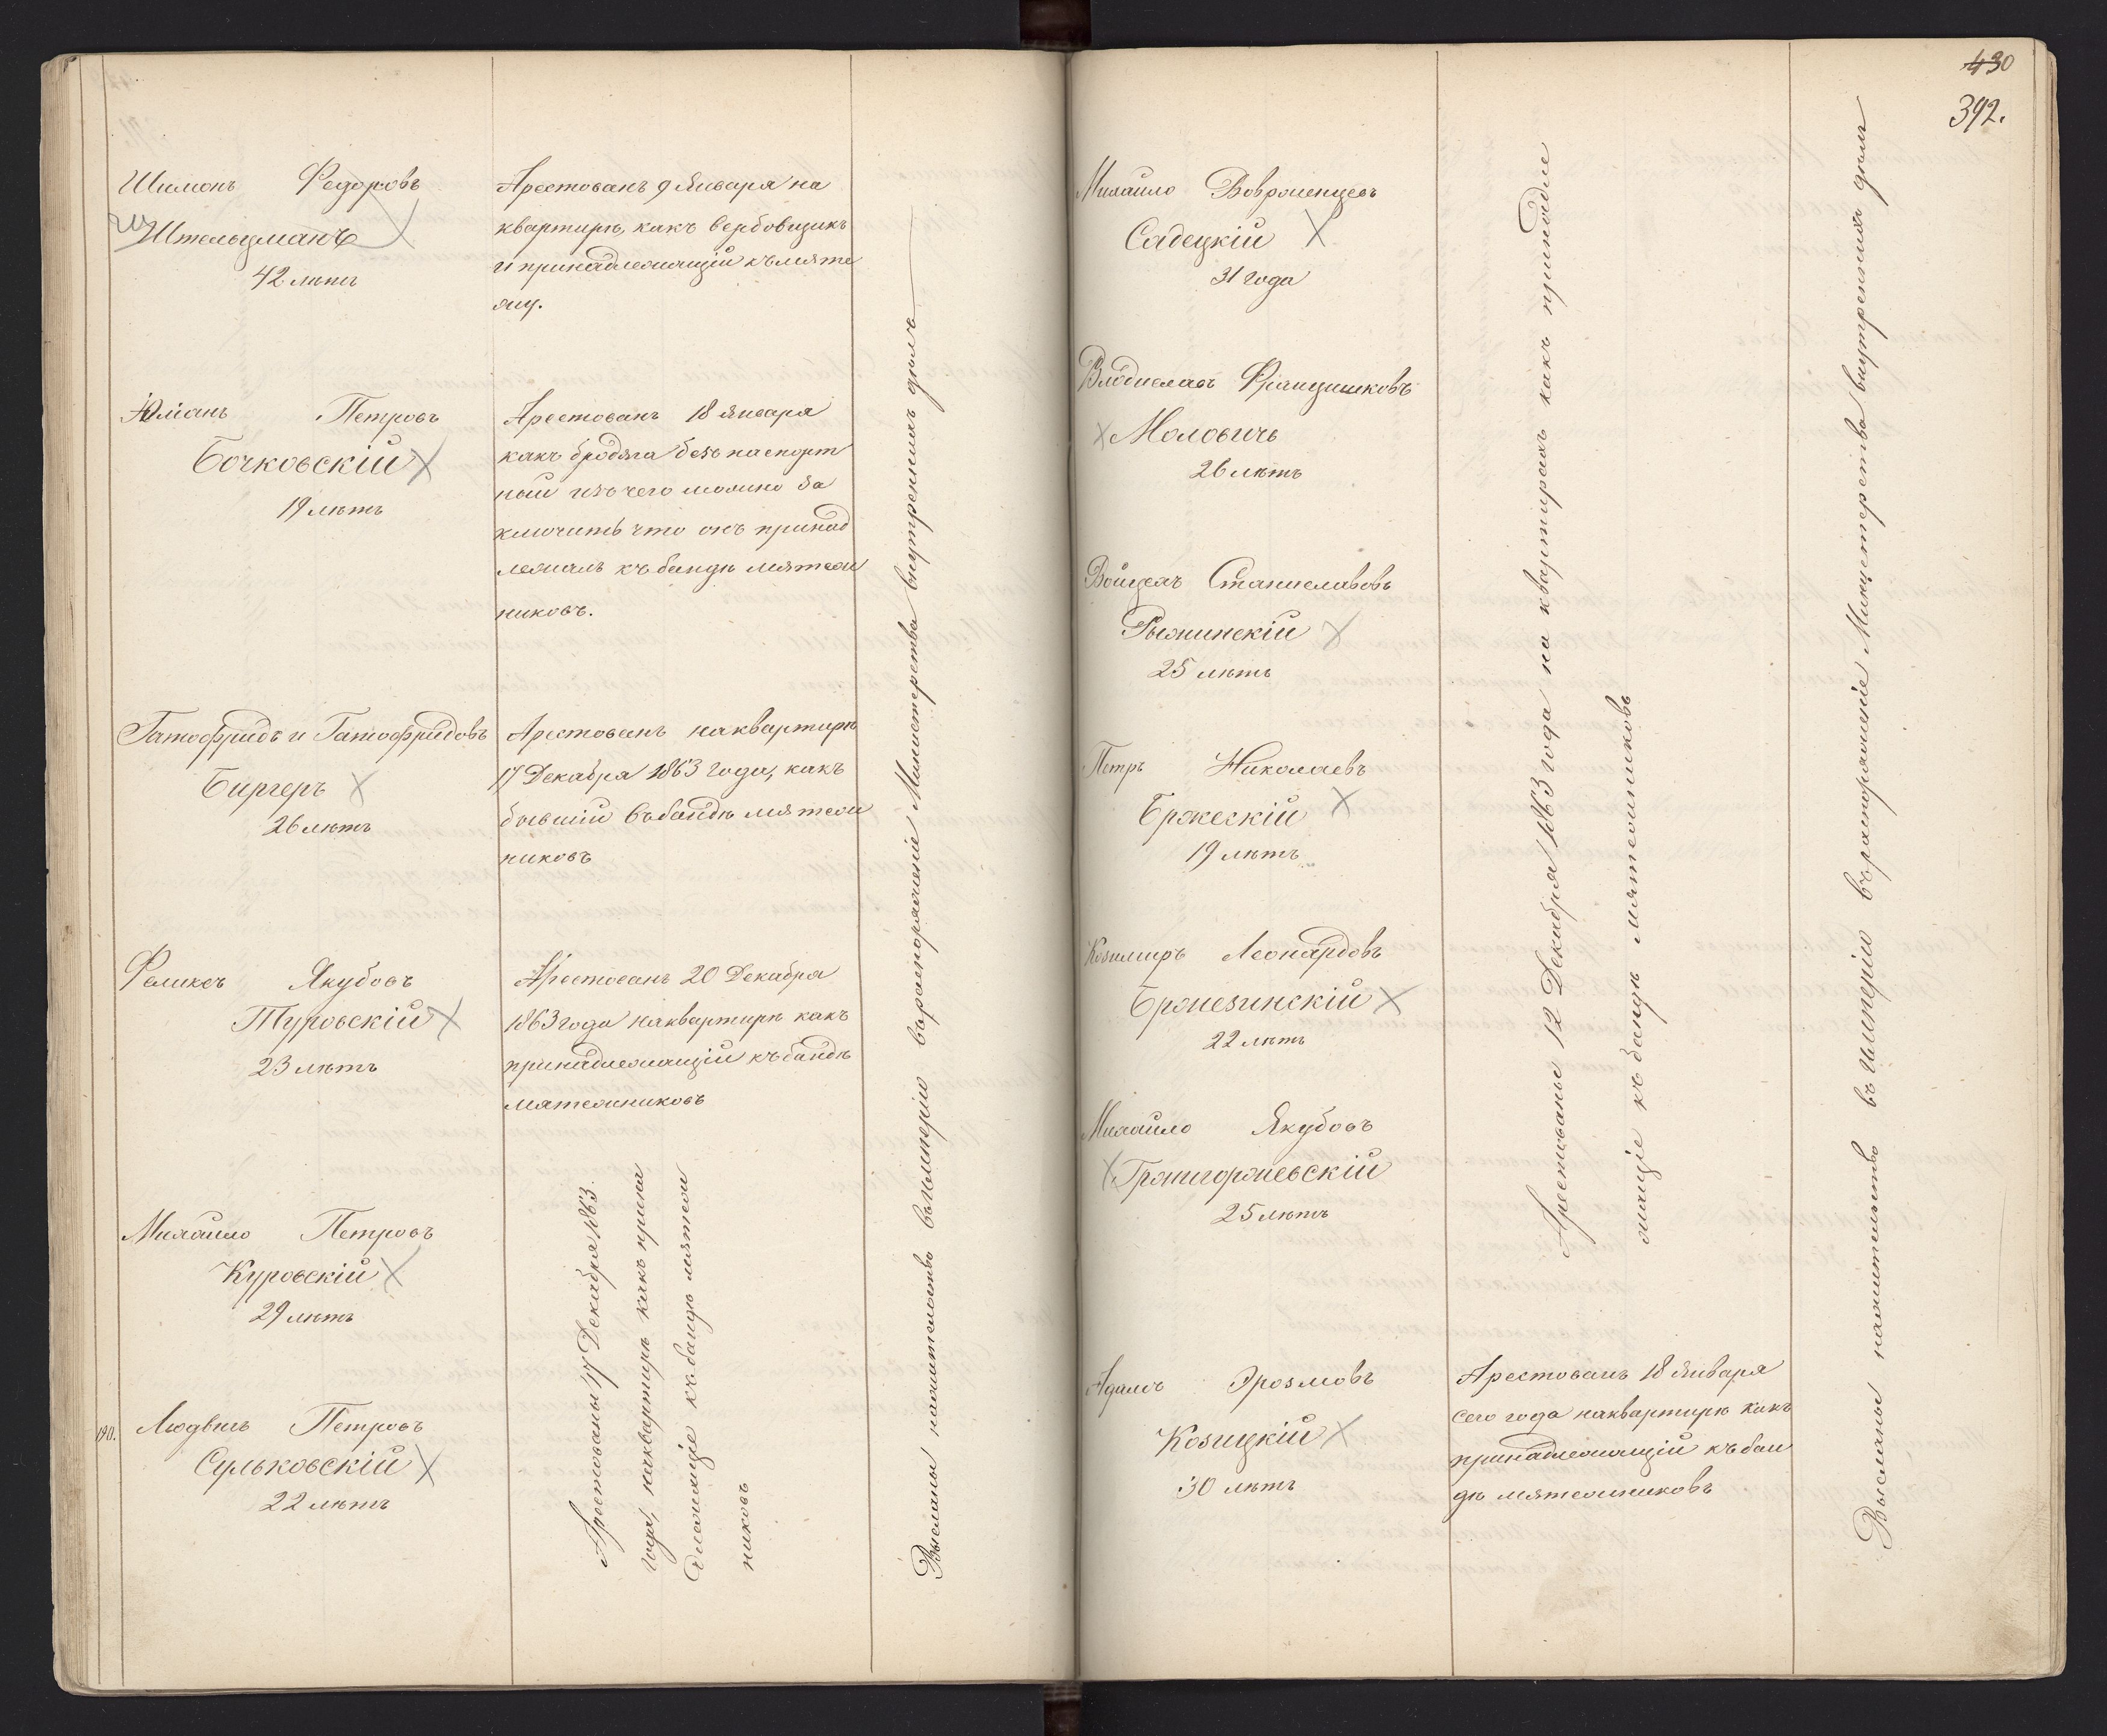 Шимонъ Федоровъ
Штельцманъ
42 лѣтъ
Арестованъ 9 Января на
квартирѣ, какъ вербовщикъ
и принадлежащій къ мяте
жу.
Юліанъ Петровъ
Бочковскій
19 лѣтъ
Арестованъ 18 Января
какъ бродяга безъ паспорт
ный изъ чего можно за
ключить что онъ принад
лежалъ къ бандѣ мятеж
никовъ.
Готфридъ и Готфридовъ
Биргеръ
26 лѣтъ
Арестованъ на квартирѣ
17 Декабря 1863 года, какъ
бывшій въ бандѣ мятеж
никовъ
Феликсъ Якубовъ
Туровскій
23 лѣтъ
Арестованъ 20 Декабря
1863 года на квартирѣ какъ
принадлежащій къ бандѣ
мятежниковъ
Михайло Петровъ
Куровскій
29 лѣтъ
190. Людвигъ Петровъ
Сульковскій
22 лѣтъ
Арестованы 17 Декабря 1863.
года, на квартирѣ какъ прина
длежащіе къ бандѣ мятеж
никовъ
Высланы на жительство въ Имперію въ распоряженіе Министерства внутреннихъ дѣлъ
430
392.
Михайло
Садецкій
31 года
Владиславъ Францишковъ
Моловичъ
26 лѣтъ
Войцехъ Станиславовъ
Рыжинскій
25 лѣтъ
Петръ Николаевъ
Бржескій
19 лѣтъ
Казимиръ Леонардовъ
Бржезинскій
22 лѣтъ
Михайло Якубовъ
Гржигоржевскій
25 лѣтъ
Арестованы 12 Декабря 1863 года на квартирахъ какъ принадле
жащіе къ бандѣ мятежниковъ
Адамъ Эрозмовъ
Козицкій
30 лѣтъ
Арестованъ 18 Января
сего года на квартирѣ какъ
принадлежащій къ бан
дѣ мятежниковъ
Высланы на жительство въ Имперію въ распоряженіе Министерства внутреннихъ дѣлъ